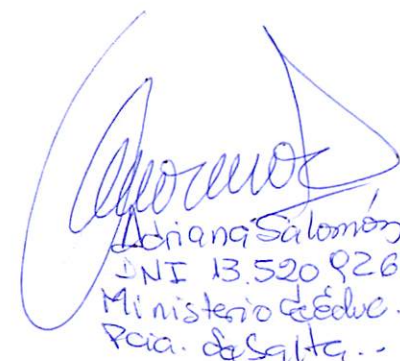 Adriana Salomón
DNI 13.520 926
Ministerio de Educ.
Pcia. de Salta..